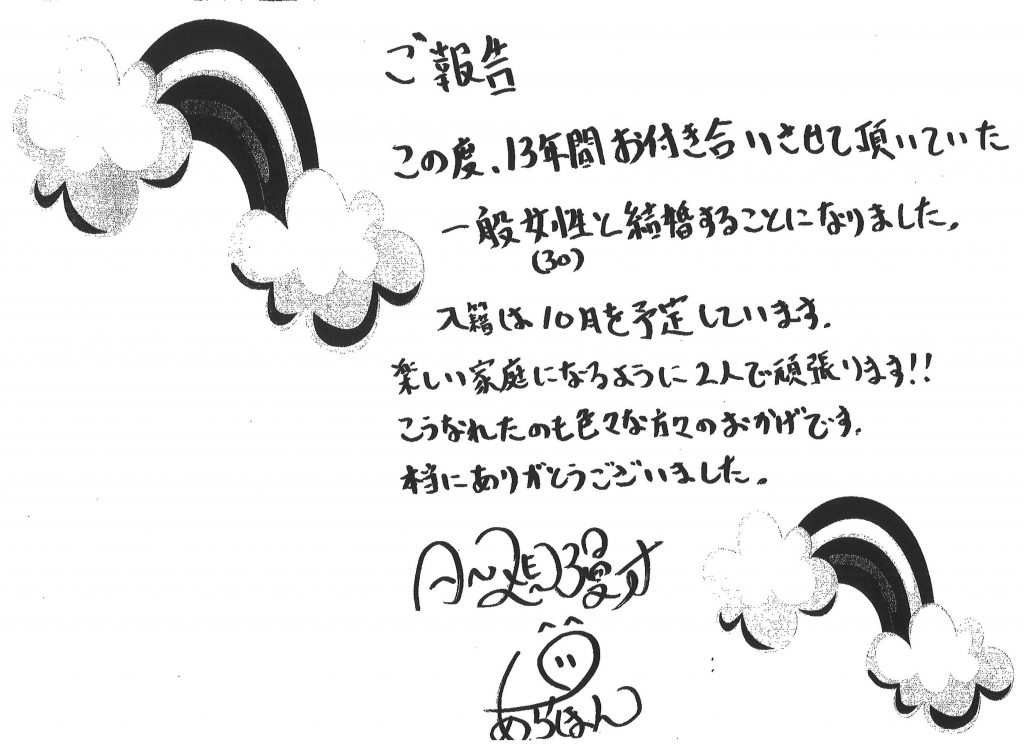 ご報告
この度、13年間お付き合いさせて頂いていた
一般女性と結婚することになりました。
(30)
入籍は10月を予定しています。
楽しい家庭になるように2人で頑張ります!!
こうなれたのも色々な方々のおかげです。
本当にありがとうございました。
漫才
あらぽん